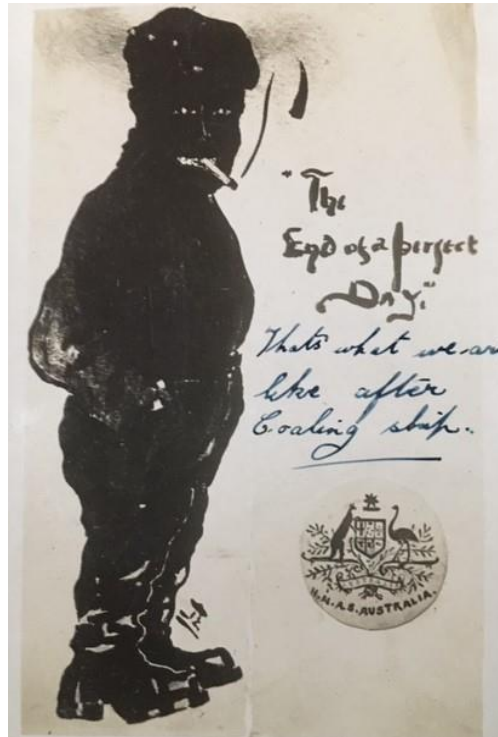 "The
End of a perfect
Day."
Thats what we are
like after
Coaling ship.
AUSTRALIA
H.M.A.S. AUSTRALIA.